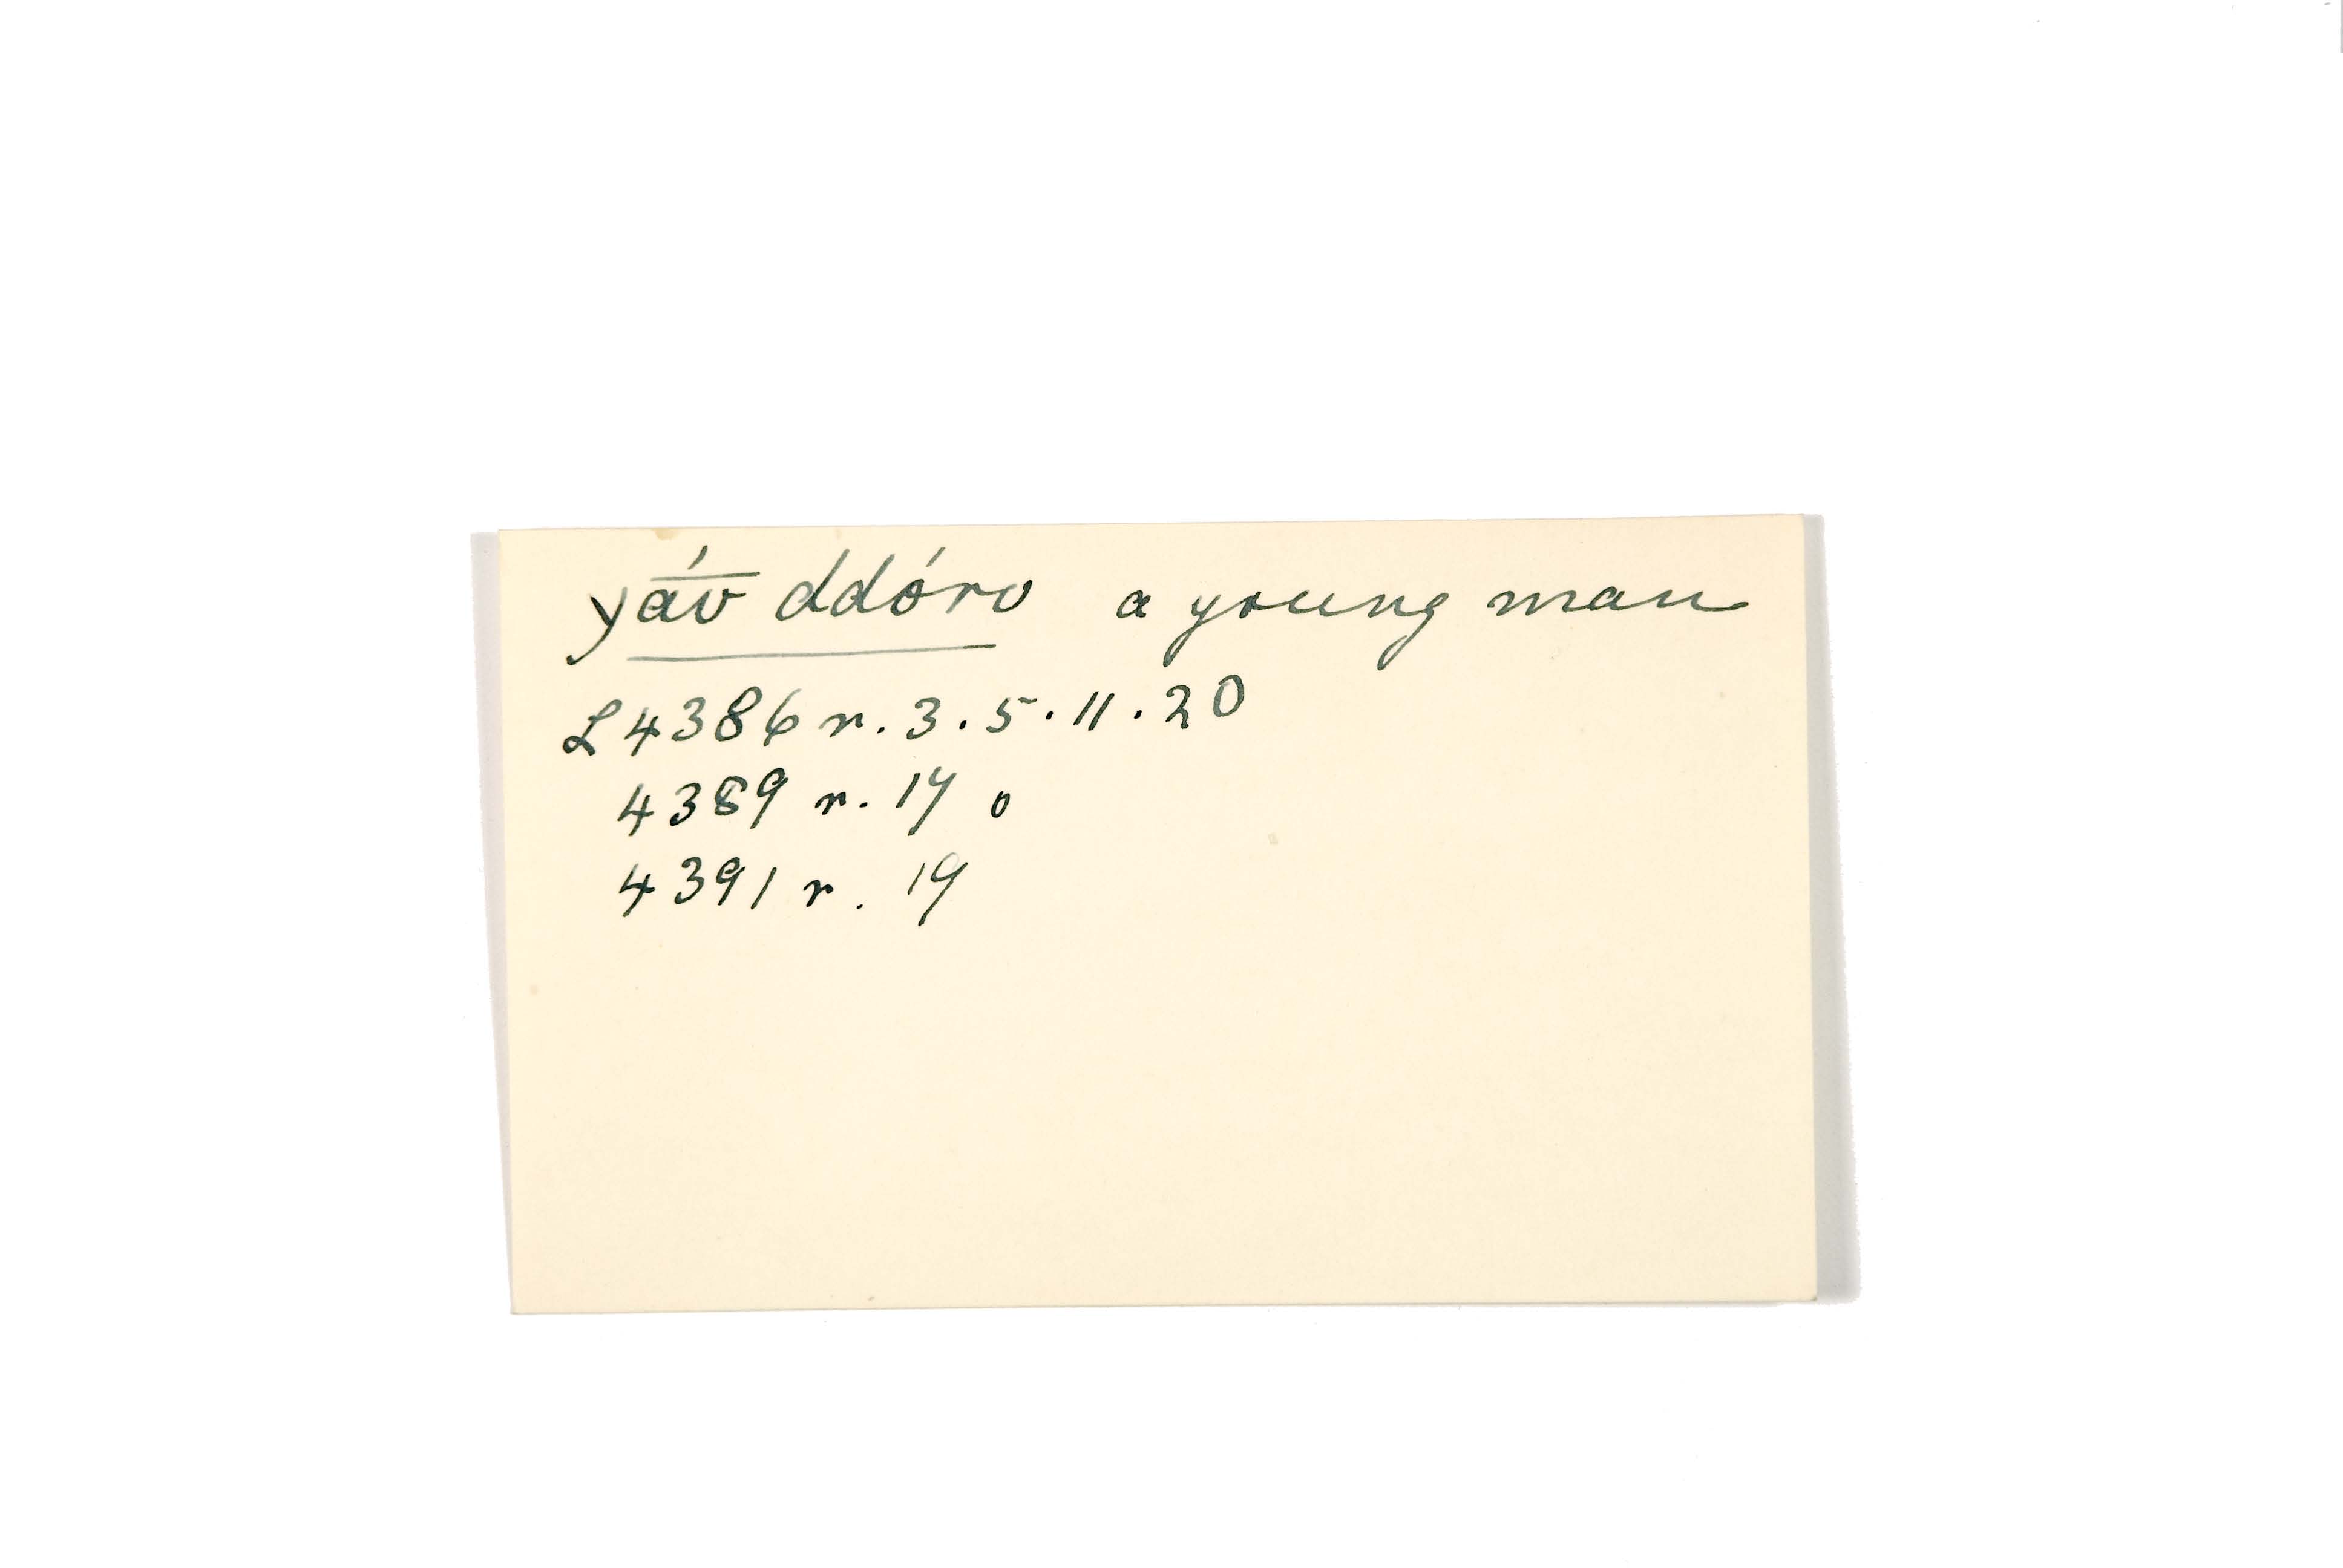 yáv̅ ddóro a young man
L 4386 r. 3. 5. 11. 20
4389 r. 14 o
4391 r. 19